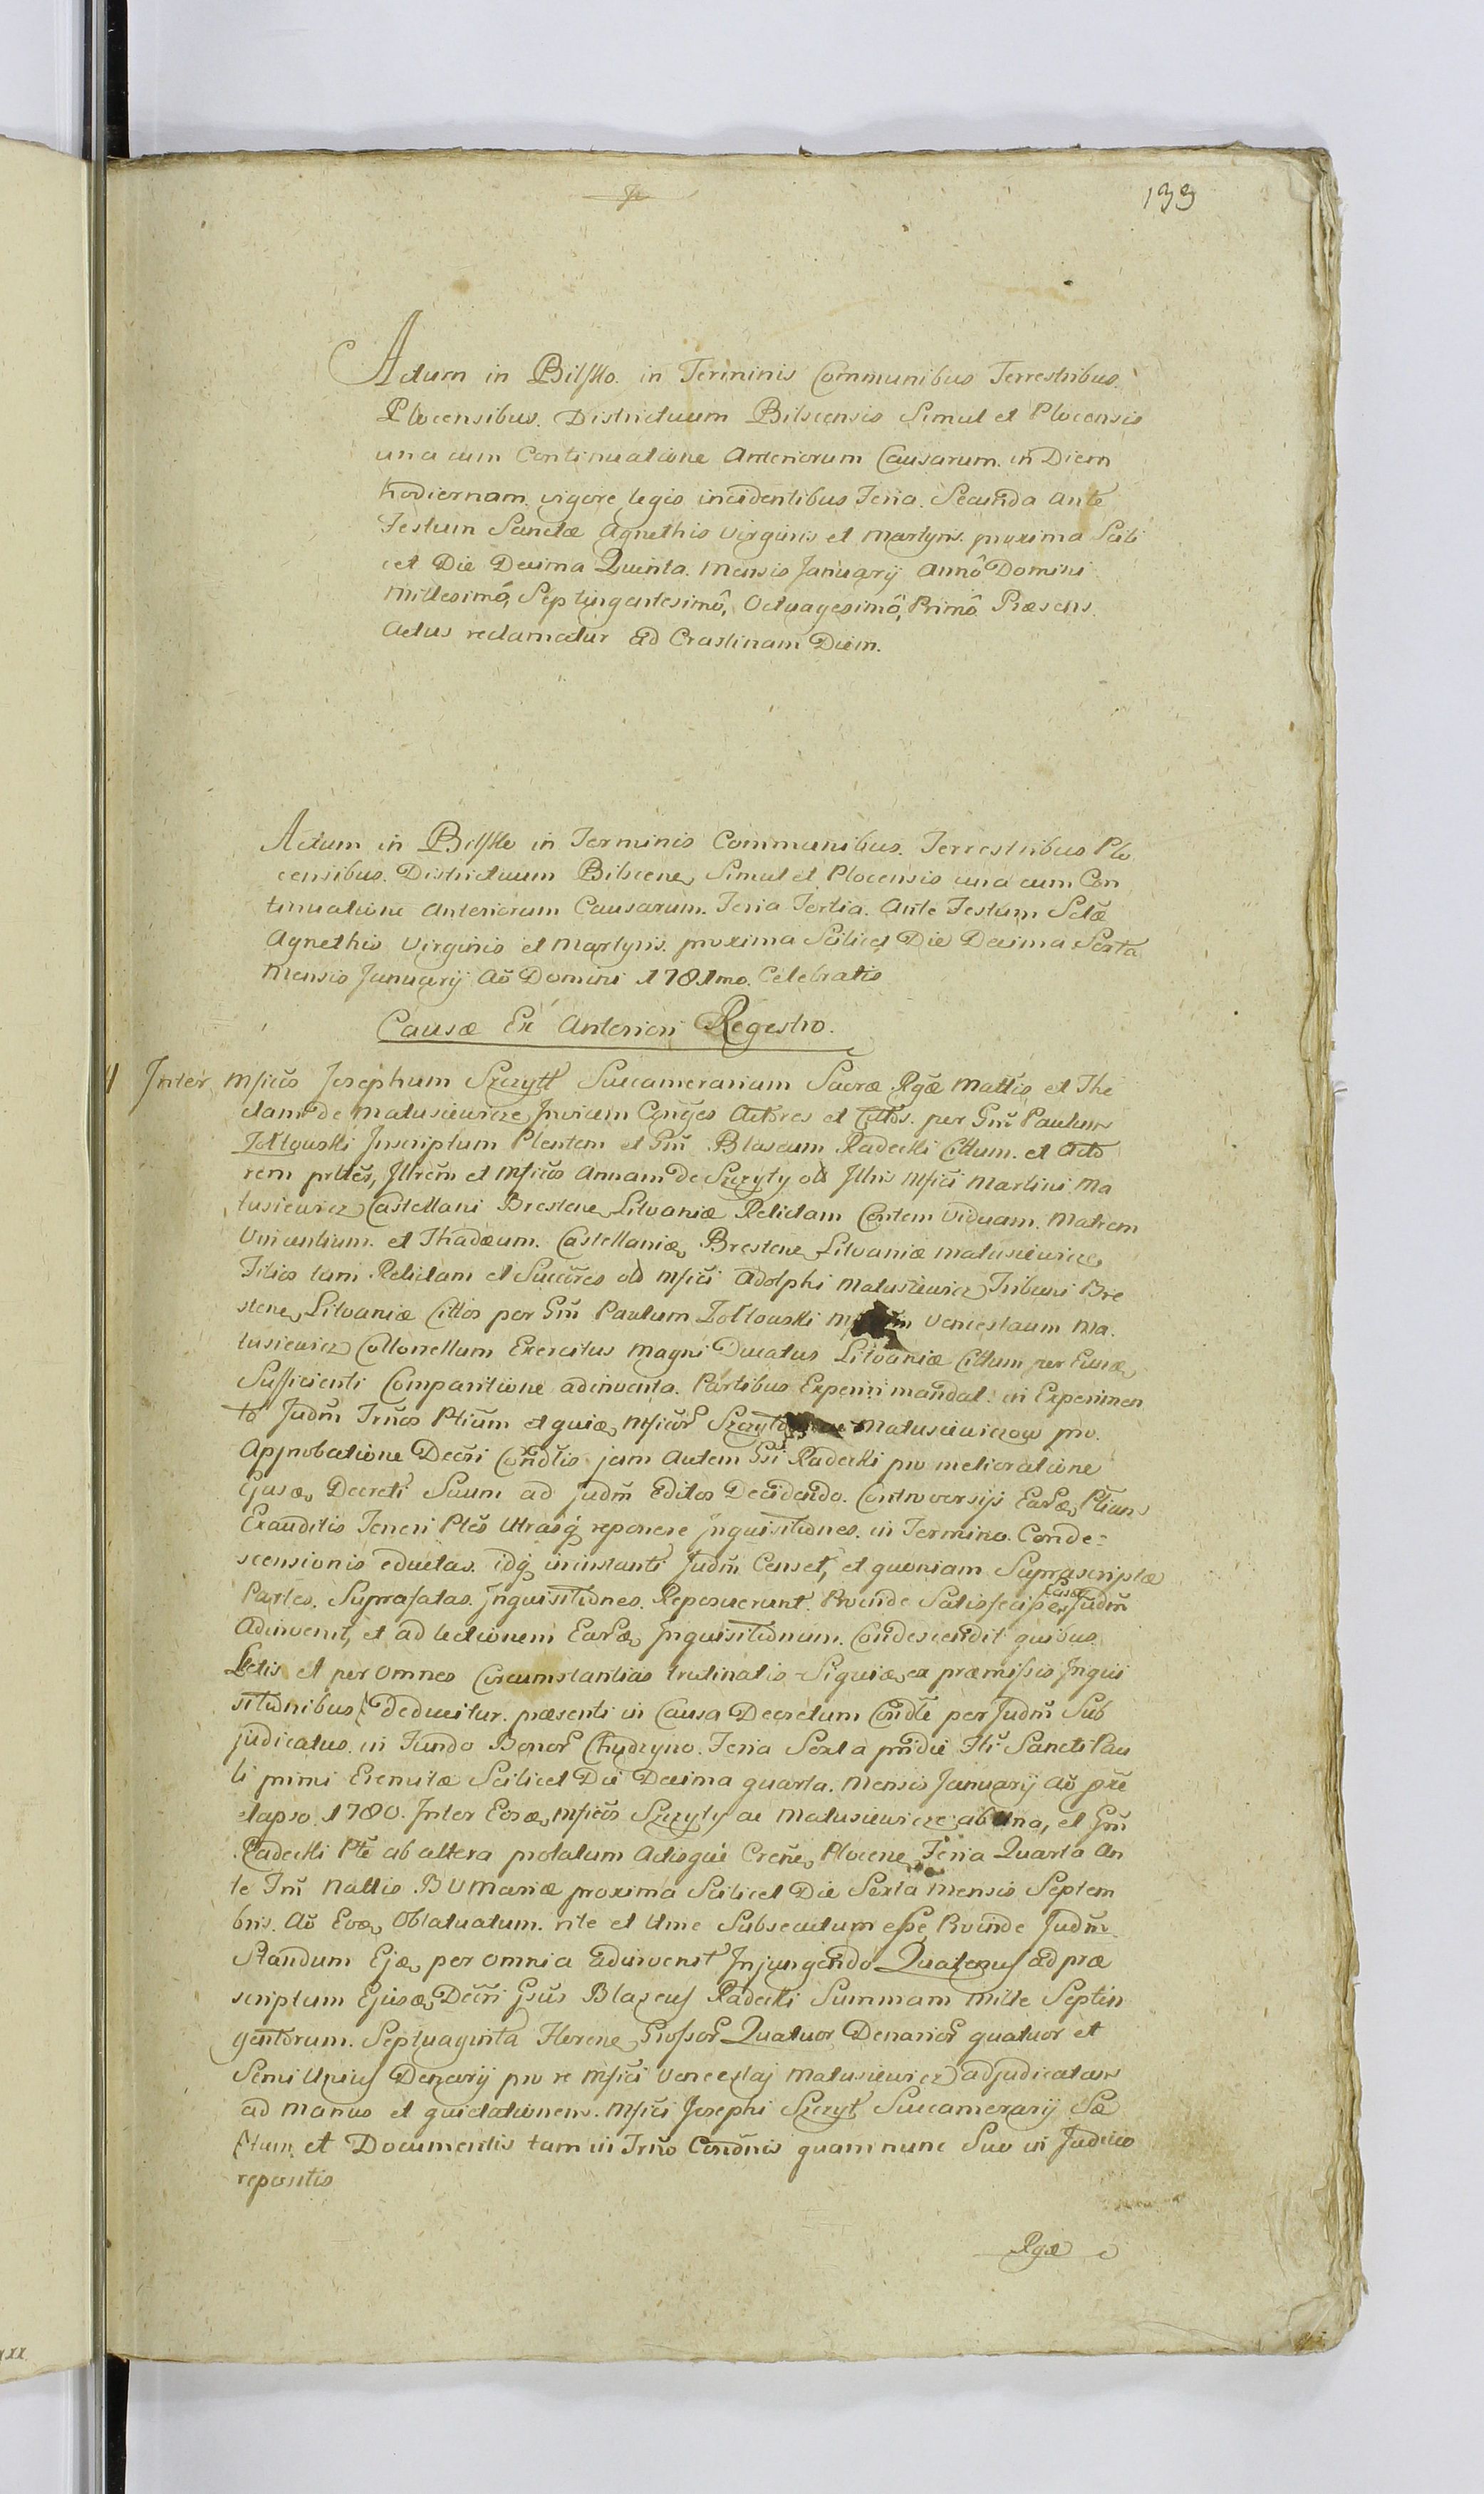 133
Actum in Bilsko. in Terminis Communibus Terrestribus.
Plocensibus. Districtuum Bilscensis Simul et Plocensis
una cum Continuatione Anteriorum Causarum. in Diem
hodiernam. vigore legis incidentibus Feria. Secunda ante
Festum Sanctæ Agnethis Virginis et Martyris. proxima Scili
cet Die Decima Quinta. Mensis Januarij Annô Domini
Millesimô, Septingentesimô, Octuagesimô, Primô Præsens.
Actus reclamatur ad Crastinam Diem.
Actum in Bilsko in Terminis Communibus. Terrestribus Plo
censibus. Districtuum Bilscen Simul et Plocensis una cum Con
tinuatione Anteriorum Causarum. Feria Tertia. Ante Festum Sctæ
Agnethis Virginis et Martyris. proxima Scilicet Die Decima Sexta
Mensis Januarij Aõ Domini 1781mo. Celebratis
Causæ Ex Anteriori Regestro.
Inter Mficũs Josephum Szczytt Succamerarium Sacræ Rgæ Mattis et The
clam de Matusiewicze Invicem Conjges Actores et Cittos. per Gm̃ Paulum
Zołtowski Inscriptum Plentem et Gm̃ Blaseum Radecki Cittum. et Acto
rem prltẽs, Illrem̃ et Mficũs Annam de Szczyty olÌ Illris Mfici Martini Ma
tusiewicz Castellani Bresten Litvaniæ Relictam Coñtem Viduam. Matrem
Vincentium. et Thadæum. Castellaniæ Bresten Litvaniæ Matusiewicze
Filios tam Relictam et Succres olÌ Mfici Adolphi Matusiewicz Tribuni Bre
sten Litvaniæ Cittos per Gm̃ Paulum Zołtowski Venceslaum Ma.
tusiewicz Collonellum Exercitus Magni Ducatus Litvaniæ Cittum per Eund
Sufficienti Comparitione adinventa. Partibus Experiri mandat. in Experimen
to Judm̃ Trños Ptium et quia Mficor Szczytow Matusiewiczow pro.
Approbatione Decri Condlis jam Autem Gsi Radecki pro melioratione
Ejusd Decreti Suum ad Judm̃ Editos Decidendo. Controversijs Eard Ptium
Exauditis Teneri Ptes Utrasq reponere Inquisitiones. in Termino. Conde=
scensionis eductas. idq in instanti Judm̃ Censet, et quoniam Suprascriptæ
Partes. Suprafatas. Inquisitiones. Reposuerunt. Proinde Satisfeciss Easd per Judm̃
Adinvenit, et ad lectionem Eard Inquisitionum. Condescendit quibus.
Lctis et per omnes Circumstantias trutinatis Siquid ex præmissis Inqui
sitionibus Deducitur. præsenti in Causa Decretum Condle per Judm̃ Sub
judicatus. in Fundo Bonor Chudzyno. Feria Sexta pridie Fti Sancti Pau
li primi Eremitæ Scilicet Die Decima quarta. Mensis Januarij Aõ prẽ
elapso 1780. Inter Eosd Mficõs Szczyty ac Matusiewicze ab Una, et Gm̃
Radecki Pte ab altera prolatum Actisque Creñ Plocen Feria Quarta An
te Fm̃ Nattis B V Mariæ proxima Scilicet Die Sexta Mensis Septem
bris. Aõ Eod Oblatuatum. rite et ltme Subsecutum esse, Proinde Judm̃
Standum Ejd per omnia adinvenit Injungendo Quatenus ad præ
scriptum Ejusd Decri Gsus Blaseus Radecki Summam mille Septin
gentorum. Septuaginta Floren Grossor Quatuor Denarior quatuor et
Semi Unius Denarij pro re Mfici Venceslaj Matusiewicz adjudicatam
ad manus et quietationem. Mfici Josephi Szczyt Succamerarij Sæ
et Documentis tam in Trno Condnis quam nunc Suo in Judicio
repositis
Rgæ